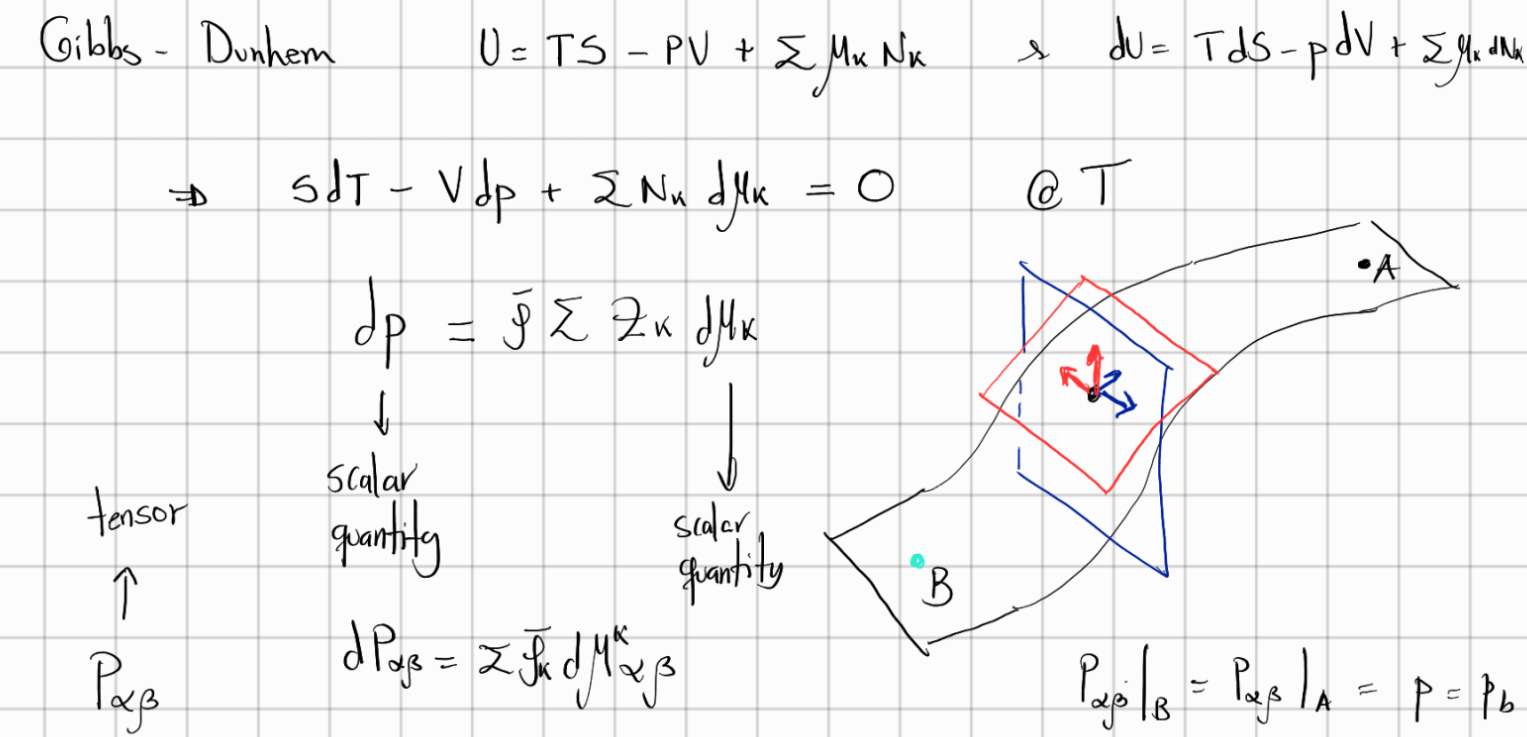 Gibbs - Dunhem U = TS - PV + Σ μₖ Nₖ & dU = TdS - pdV + Σ μₖ dNₖ
⇒ SdT - Vdp + Σ Nₖ dμₖ = 0 @ T
•A
dp = ρ̄ Σ Zₖ dμₖ
↓ ↓
scalar quantity
scalar quantity
tensor
↑
B
P_αβ
dP_αβ = Σ ρ̄ₖ dμᵏ_αβ
P_αβ|_B = P_αβ|_A = p = p_b